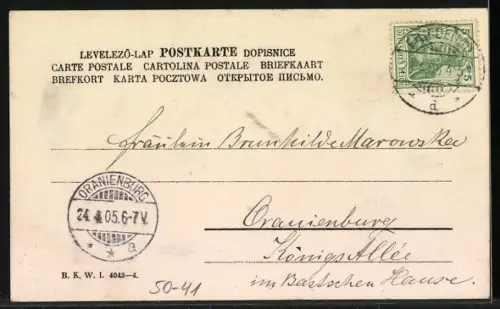 LEVELEZŐ-LAP POSTKARTE DOPISNICE
CARTE POSTALE CARTOLINA POSTALE BRIEFKAART
BREFKORT KARTA POCZTOWA ОТКРЫТОЕ ПИСЬМО.
a
Fräulein Brunhilde Marowska
ORANIENBURG
24.4.05.6-7V.
a
Oranienburg
Königs Allée
im Bastschen Hause.
B. K. W. I. 4043-4.
50-41